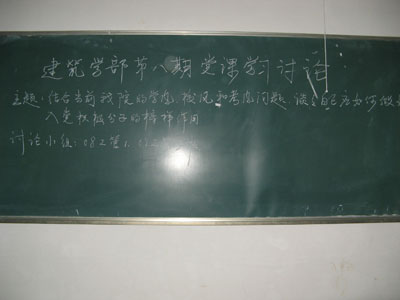 建筑学部第八期党课学习讨论
主题:结合当前我院的学风、校风和考风问题谈谈自己应如何做
入党积极分子的榜样作用
讨论小组:082第1